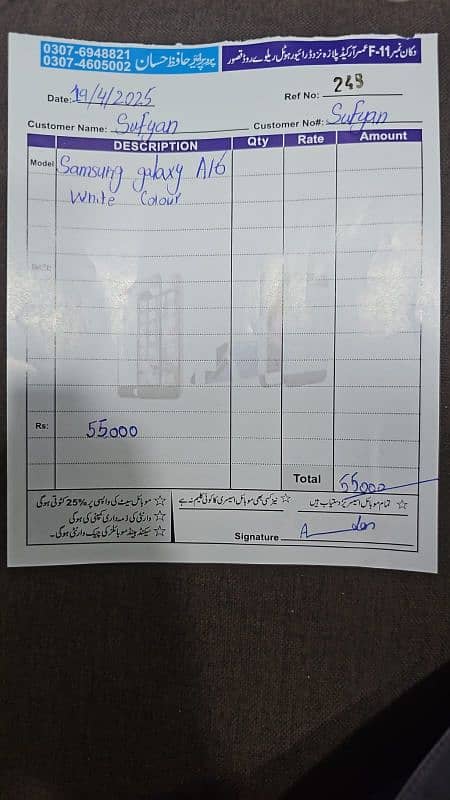 0307-6948821
0307-4605002
پروپرائیٹر حافظ حسان
دکان نمبر F-11 عمر آرکیڈ پلازہ نزد ڈرائیور ہوٹل ریلوے روڈ قصور
Date: 19/4/2025
Ref No: 249
Customer Name: Sufyan
Customer No#: Sufyan
DESCRIPTION Qty Rate Amount
Model Samsung galaxy A16
White Colour
Rs: 55000
Total 55000
☆ تمام موبائل اسیسریز دستیاب ہیں
☆ نیز کسی بھی موبائل اسیسری کا کوئی کلیم نہ ہے
☆ موبائل سیٹ کی واپسی پر 25% کٹوتی ہوگی
☆ وارنٹی کی ذمہ داری کمپنی کی ہوگی
☆ سیکنڈ ہینڈ موبائلز کی چیک وارنٹی ہوگی۔
Signature